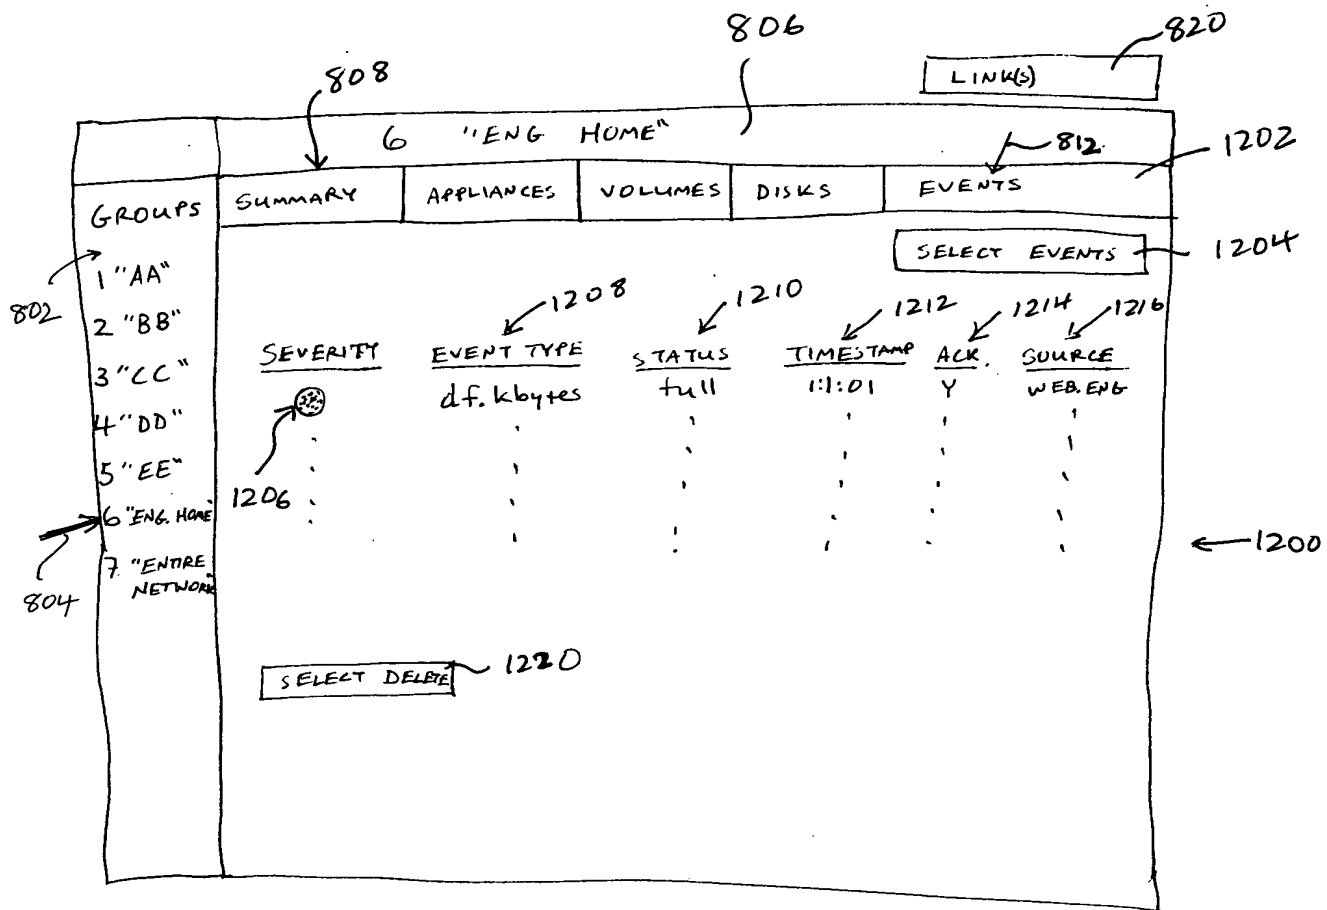 806
820
LINK(S)
808
6 "ENG HOME"
812
1202
GROUPS
SUMMARY APPLIANCES VOLUMES DISKS EVENTS
SELECT EVENTS
1204
802
1 "AA"
2 "BB"
3 "CC"
4 "DD"
5 "EE"
6 "ENG. HOME"
7 "ENTIRE
NETWORK"
804
1208 1210 1212 1214 1216
SEVERITY EVENT TYPE STATUS TIMESTAMP ACK. SOURCE
df.kbytes full 1:1:01 Y WEB.ENG
1206
1200
SELECT DELETE
1220